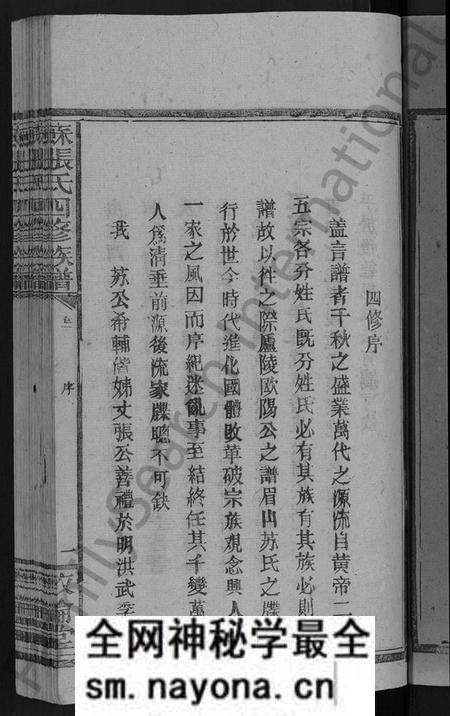 四修序
盖言譜者千秋之盛業萬代之源流自黄帝二
五宗各分姓氏既分姓氏必有其族有其族必則
譜故以往之際廬陵歐陽公之譜眉山苏氏之牒
行於世今時代進化國體改革破宗族观念興人
一家之風因而序紀迷亂事至結終任其千變萬
人爲清垂前源後流家牒聰不可缺
我 苏公希輔偕姊丈張公善禮於明洪武季
蘇張氏四修族譜
序
一
敦倫堂
FamilySearch International
全网神秘学最全
sm.nayona.cn